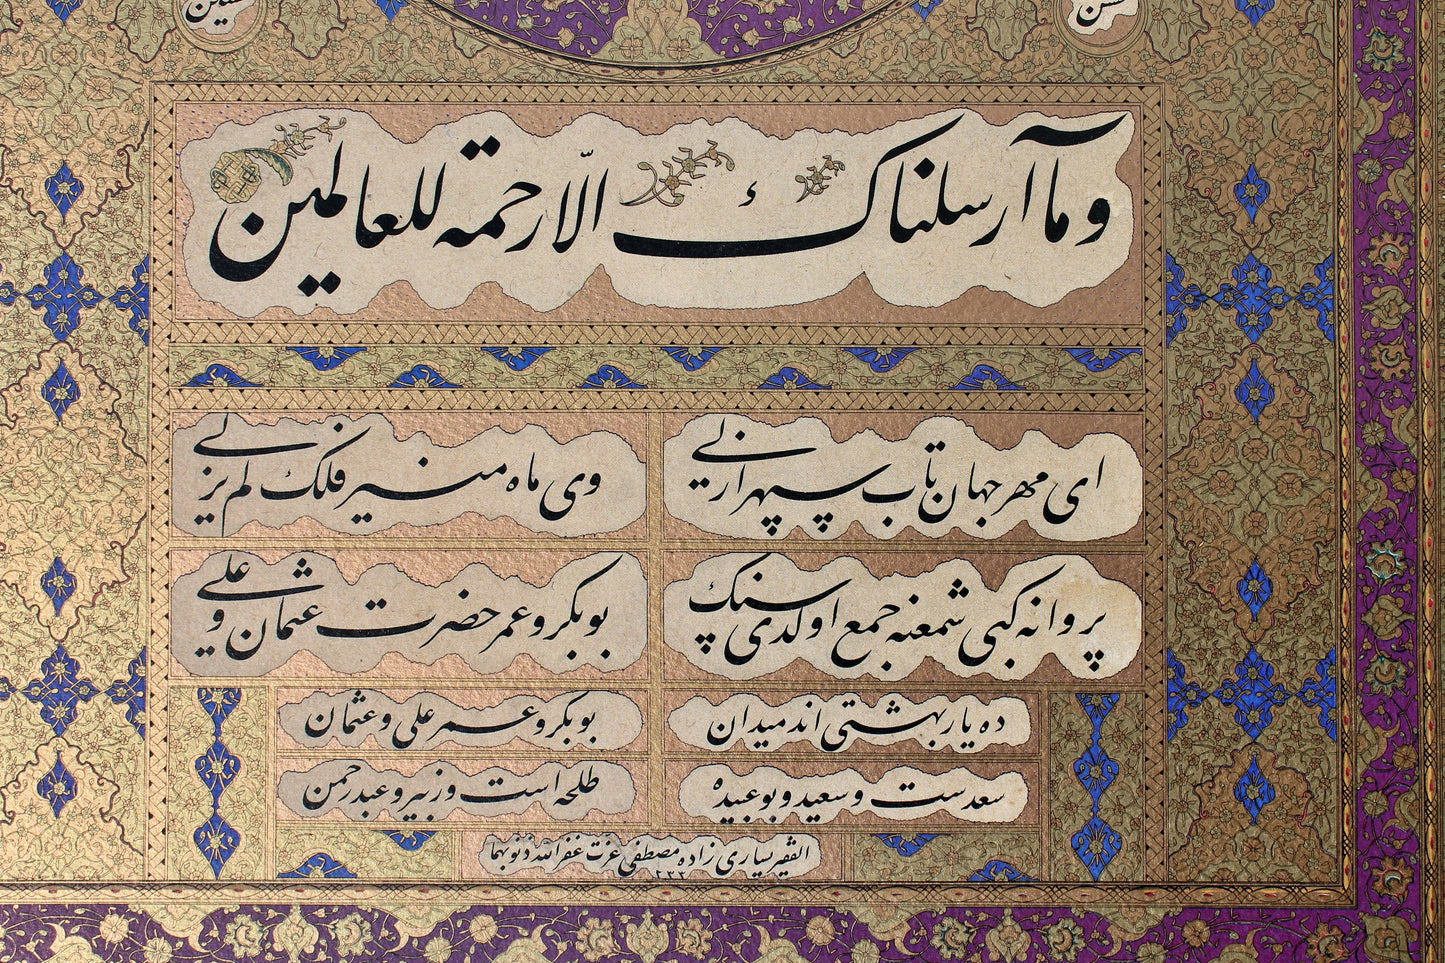 وما آرسلناك الّا رحمة للعالمین
ای مهر جهان تاب سپهر ازلی
وی ماه منیر فلك لم یزلی
پروانه كبی شمعنه جمع اولدی سنك
بوبكر و عمر حضرت عثمان و علی
ده یار بهشتی اند میدان
بوبكر و عمر علی و عثمان
سعدست و سعید و بوعبیده
طلحه است و زبیر و عبدرحمن
الفقیر یساری زاده مصطفی عزت غفر الله ذنوبهما